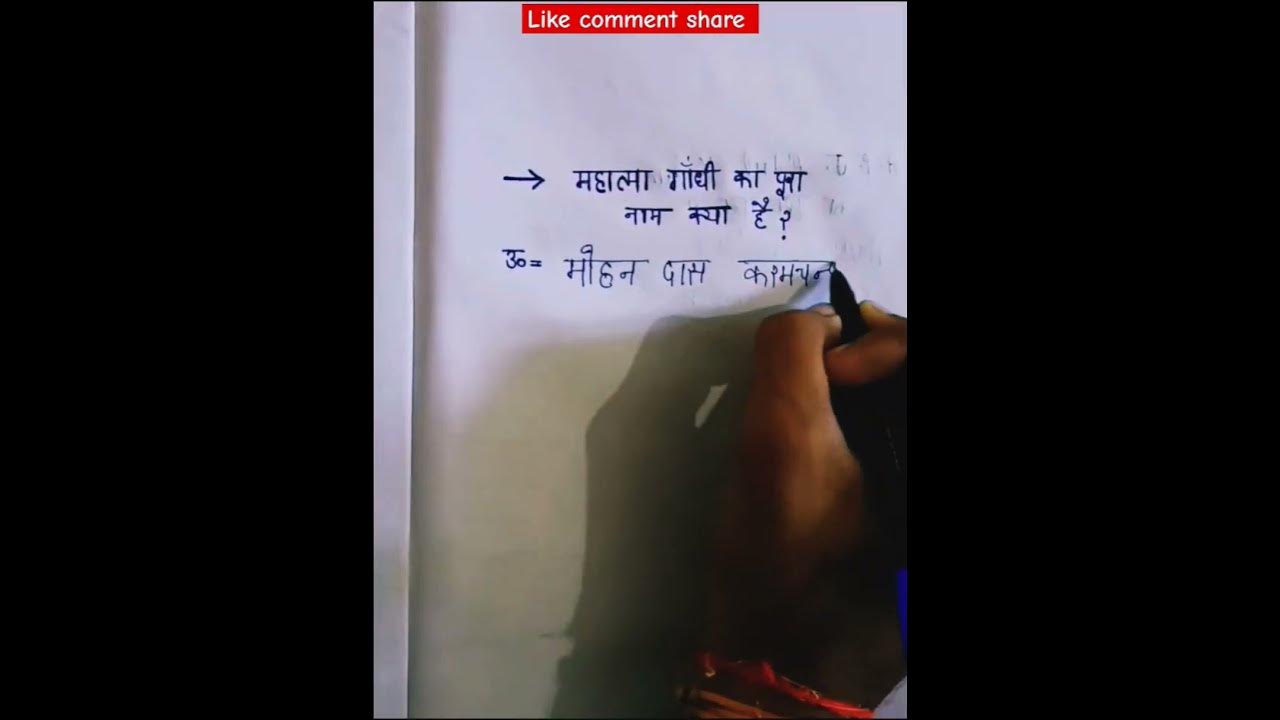 Like comment share
→ महात्मा गाँधी का पूरा
नाम क्या है?
उ०= मोहन दास करमचन